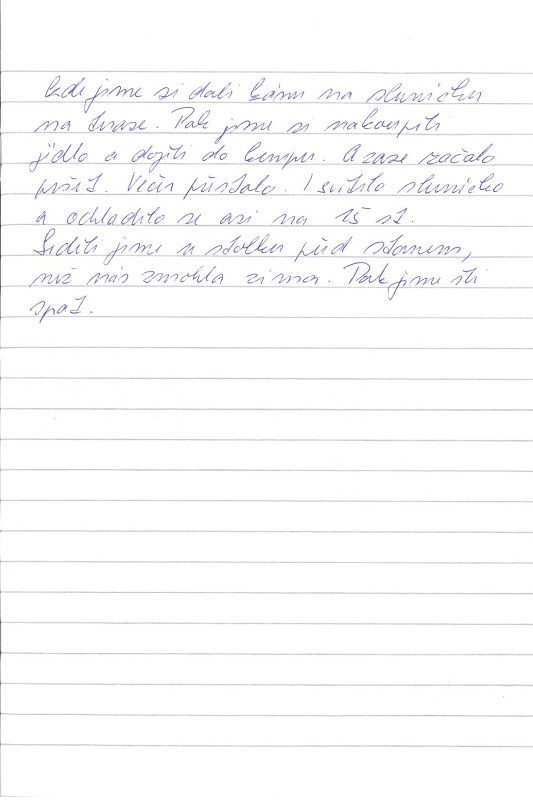 kde jsme si dali kávu na sluníčku
na terase. Pak jsme si nakoupili
jídlo a dojeli do kempu. A zase začalo
pršet. Večer přestalo. I svítilo sluníčko
a ochladilo se asi na 15 st.
Seděli jsme u stolku před stanem,
než nás zmohla zima. Pak jsme šli
spat.